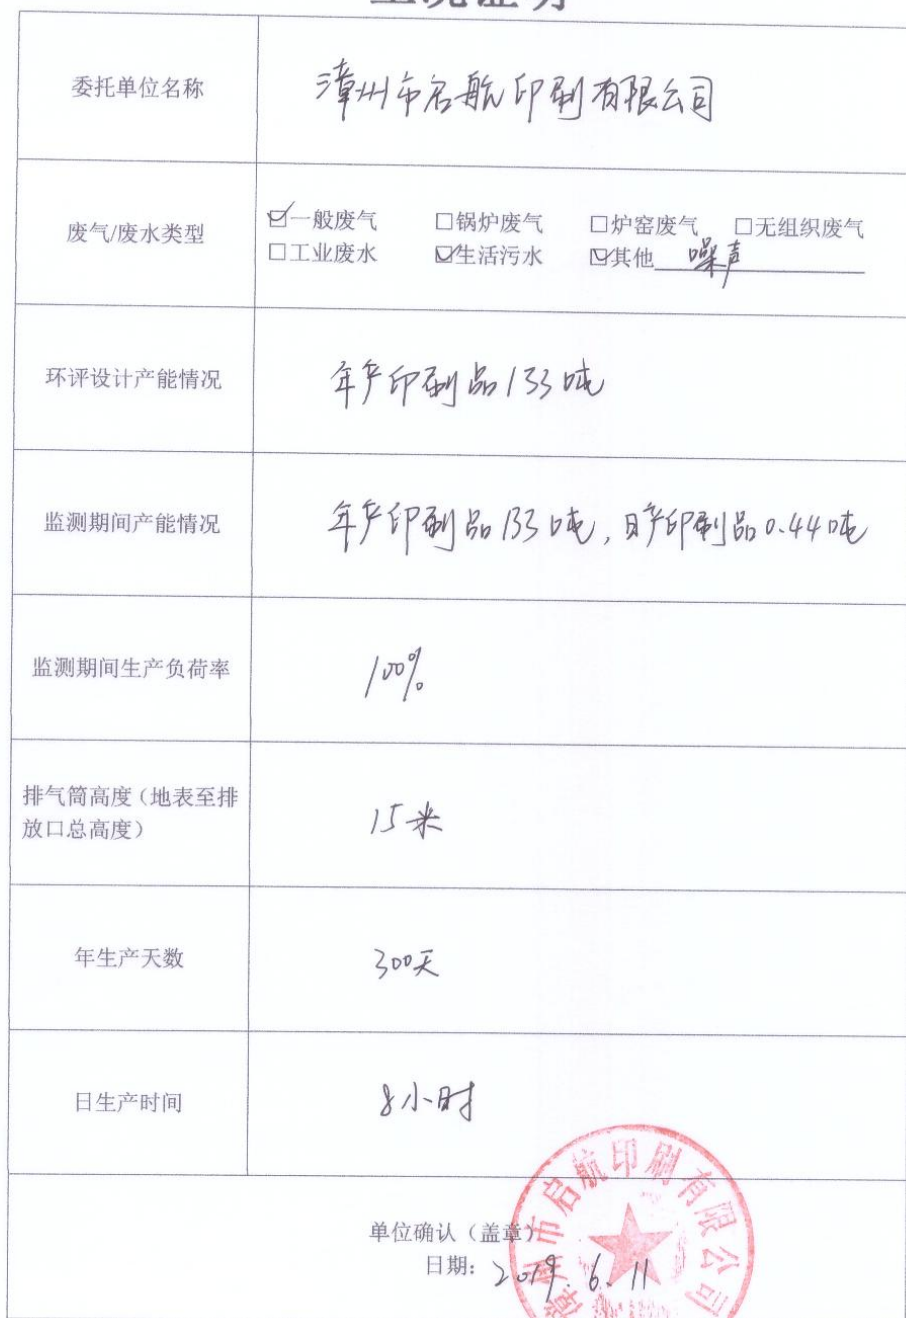 工况证明
委托单位名称
漳州市启航印刷有限公司
废气/废水类型
☑一般废气 □锅炉废气 □炉窑废气 □无组织废气
□工业废水 ☑生活污水 ☑其他 噪声
环评设计产能情况
年产印刷品133吨
监测期间产能情况
年产印刷品133吨,日产印刷品0.44吨
监测期间生产负荷率
100%
排气筒高度(地表至排
放口总高度)
15米
年生产天数
300天
日生产时间
8小时
单位确认(盖章)
日期:2019.6.11
漳州市启航印刷有限公司